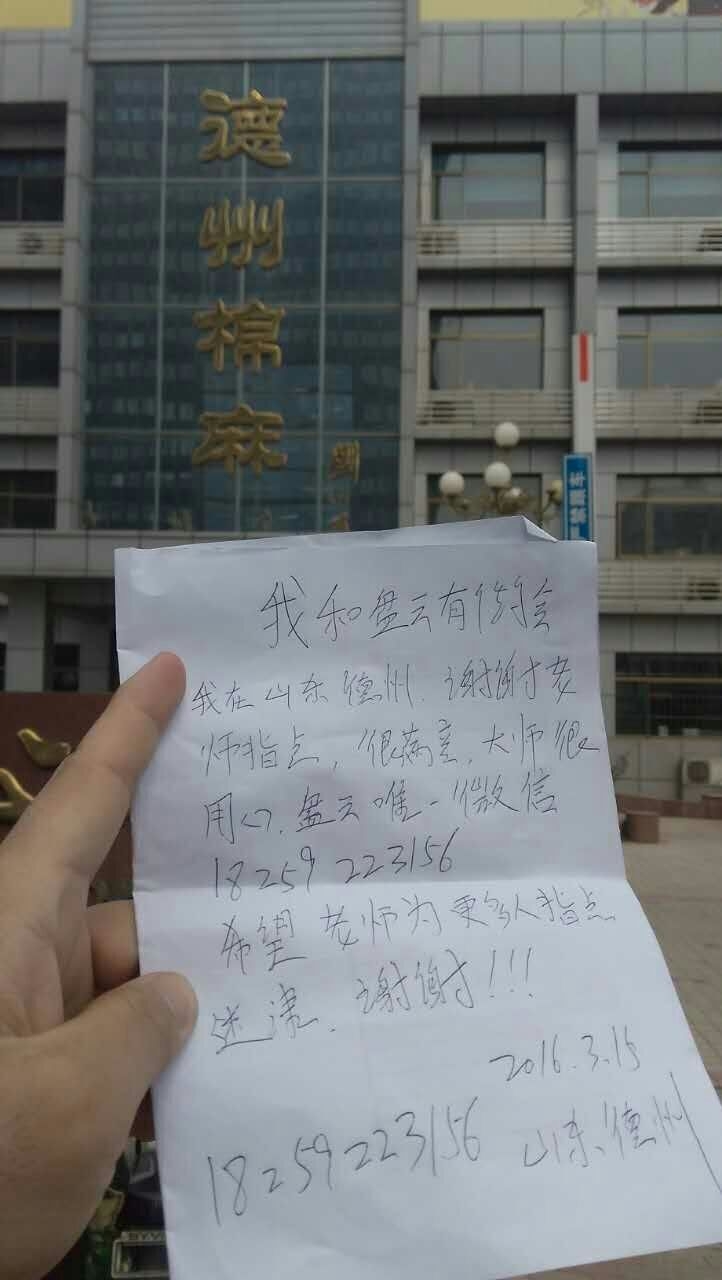 德州棉麻
我和盘云有个约会
我在山东德州.谢谢老
师指点,很满意,大师很
用心.盘云唯一微信
18259 223156
希望老师为更多人指点
迷津.谢谢!!!
2016.3.15
18259223156 山东德州